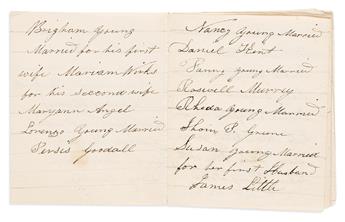 Brigham Young
Married for his first
wife Mariam Works
for his second wife
Maryann Angel
Lorenzo Young Married
Persis Goodall
Nancy Young Married
Daniel Kent
Fanny Young Married
Roswell Murrey
Rheda Young Married
Thom P. Greene
Susan Young Married
for her first Husband
James Little